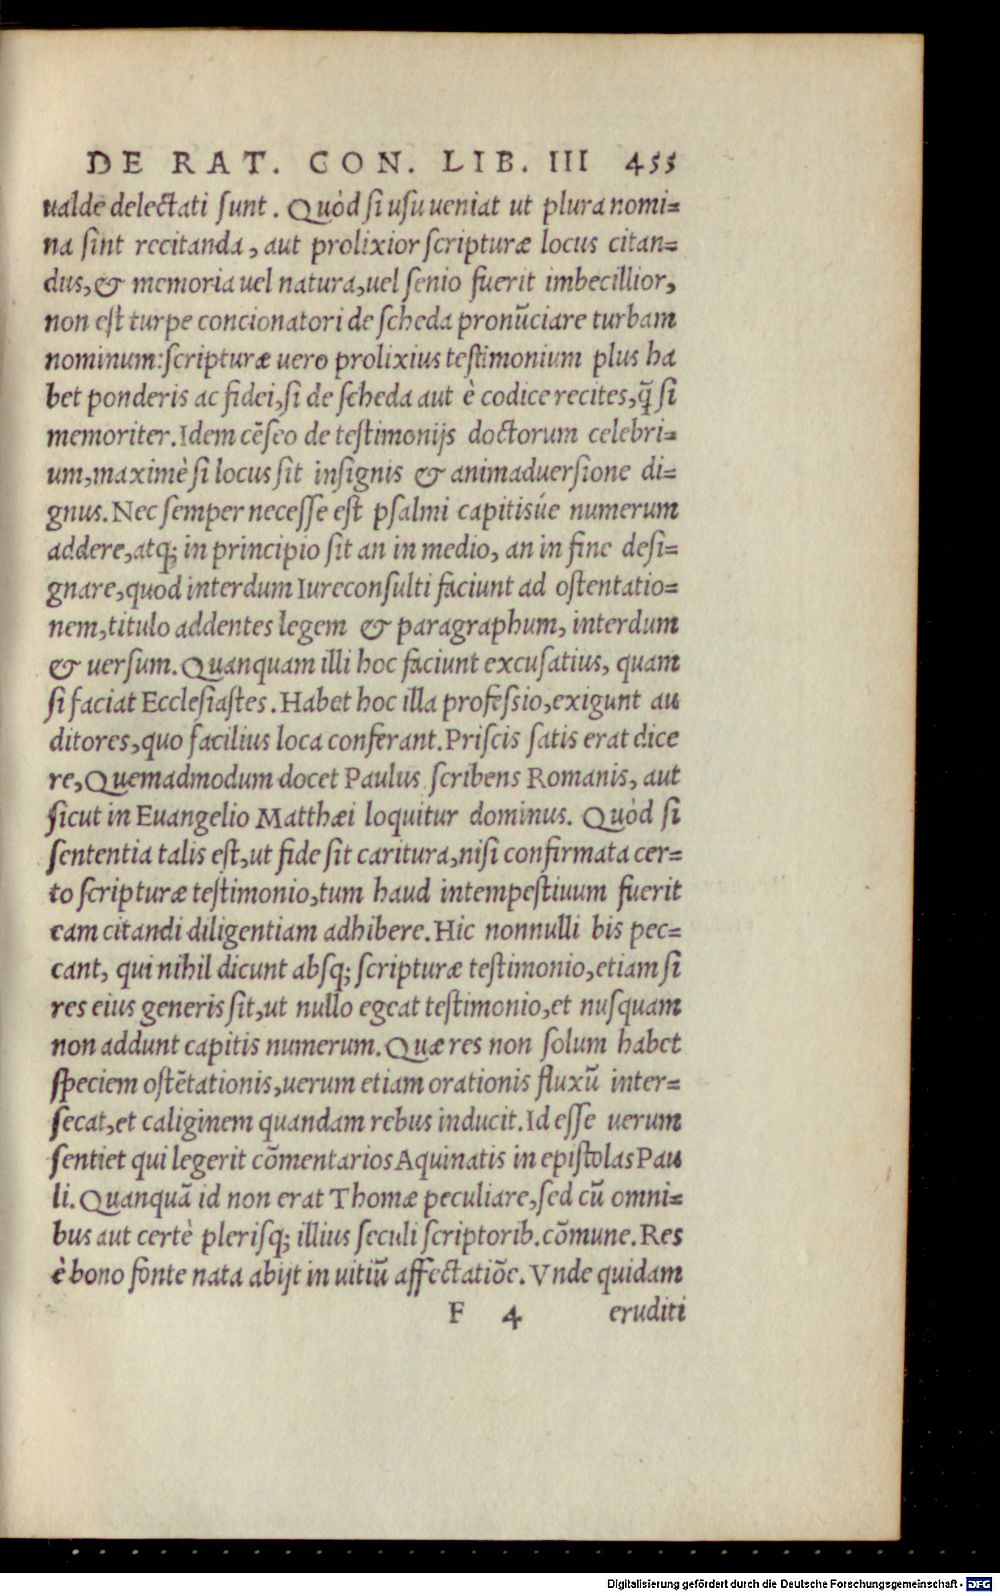 DE RAT. CON. LIB. III 455
ualde delectati ſunt. Quòd ſi uſu ueniat ut plura nomi=
na ſint recitanda, aut prolixior ſcripturæ locus citan=
dus, & memoria uel natura, uel ſenio fuerit imbecillior,
non eſt turpe concionatori de ſcheda pronũciare turbam
nominum: ſcripturæ uero prolixius teſtimonium plus ha
bet ponderis ac fidei, ſi de ſcheda aut è codice recites, q̃ ſi
memoriter. Idem cẽſeo de teſtimonijs doctorum celebri=
um, maximè ſi locus ſit inſignis & animaduerſione di=
gnus. Nec ſemper neceſſe eſt pſalmi capitisúe numerum
addere, atq; in principio ſit an in medio, an in fine deſi=
gnare, quod interdum Iureconſulti faciunt ad oſtentatio=
nem, titulo addentes legem & paragraphum, interdum
& uerſum. Quanquam illi hoc faciunt excuſatius, quam
ſi faciat Eccleſiaſtes. Habet hoc illa profeſsio, exigunt au
ditores, quo facilius loca conferant. Priſcis ſatis erat dice
re, Quemadmodum docet Paulus ſcribens Romanis, aut
ſicut in Euangelio Matthæi loquitur dominus. Quòd ſi
ſententia talis eſt, ut fide ſit caritura, niſi confirmata cer=
to ſcripturæ teſtimonio, tum haud intempeſtiuum fuerit
eam citandi diligentiam adhibere. Hic nonnulli bis pec=
cant, qui nihil dicunt abſq; ſcripturæ teſtimonio, etiam ſi
res eius generis ſit, ut nullo egeat teſtimonio, et nuſquam
non addunt capitis numerum. Quæ res non ſolum habet
ſpeciem oſtẽtationis, uerum etiam orationis fluxũ inter=
ſecat, et caliginem quandam rebus inducit. Id eſſe uerum
ſentiet qui legerit cõmentarios Aquinatis in epiſtolas Pau
li. Quanquã id non erat Thomæ peculiare, ſed cũ omni=
bus aut certè pleriſq; illius ſeculi ſcriptorib. cõmune. Res
è bono fonte nata abijt in uitiũ affectatiõe. Vnde quidam
F 4 eruditi
Digitalisierung gefördert durch die Deutsche Forschungsgemeinschaft - DFG